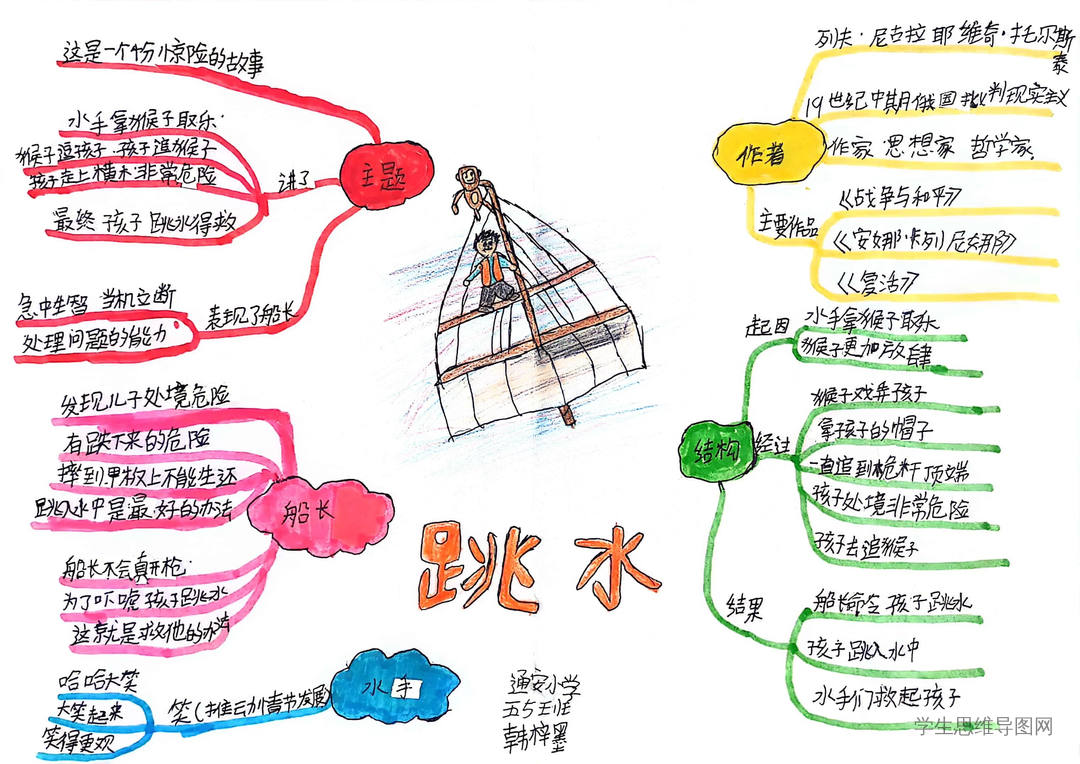 这是一个十分惊险的故事
水手拿猴子取乐
猴子逗孩子·孩子追猴子
孩子走上横木非常危险
最终孩子跳水得救
讲了
主题
急中生智 当机立断
处理问题的能力
表现了船长
发现儿子处境危险
有跌下来的危险
摔到甲板上不能生还
跳入水中是最好的办法
船长
船长不会真开枪
为了吓唬孩子跳水
这就是救他的办法
哈哈大笑
大笑起来
笑得更欢
笑(推动情节发展)
水手
跳水
通安小学
五5王班
韩梓墨
列夫·尼古拉耶维奇·托尔斯
泰
19世纪中期俄国批判现实主义
作家 思想家 哲学家
作者
主要作品
《战争与和平》
《安娜·卡列尼娜》
《复活》
起因
水手拿猴子取乐
猴子更加放肆
结构
经过
猴子戏弄孩子
拿孩子的帽子
一直追到桅杆顶端
孩子处境非常危险
孩子去追猴子
结果
船长命令孩子跳水
孩子跳入水中
水手们救起孩子
学生思维导图网